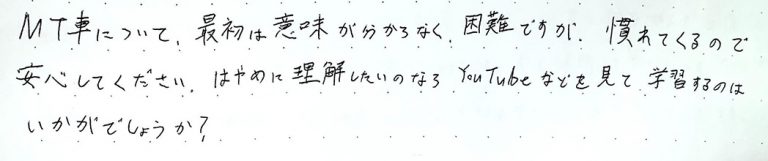 MT車について、最初は意味が分からなく、困難ですが、慣れてくるので
安心してください。はやめに理解したいのなら YouTubeなどを見て学習するのは
いかがでしょうか？